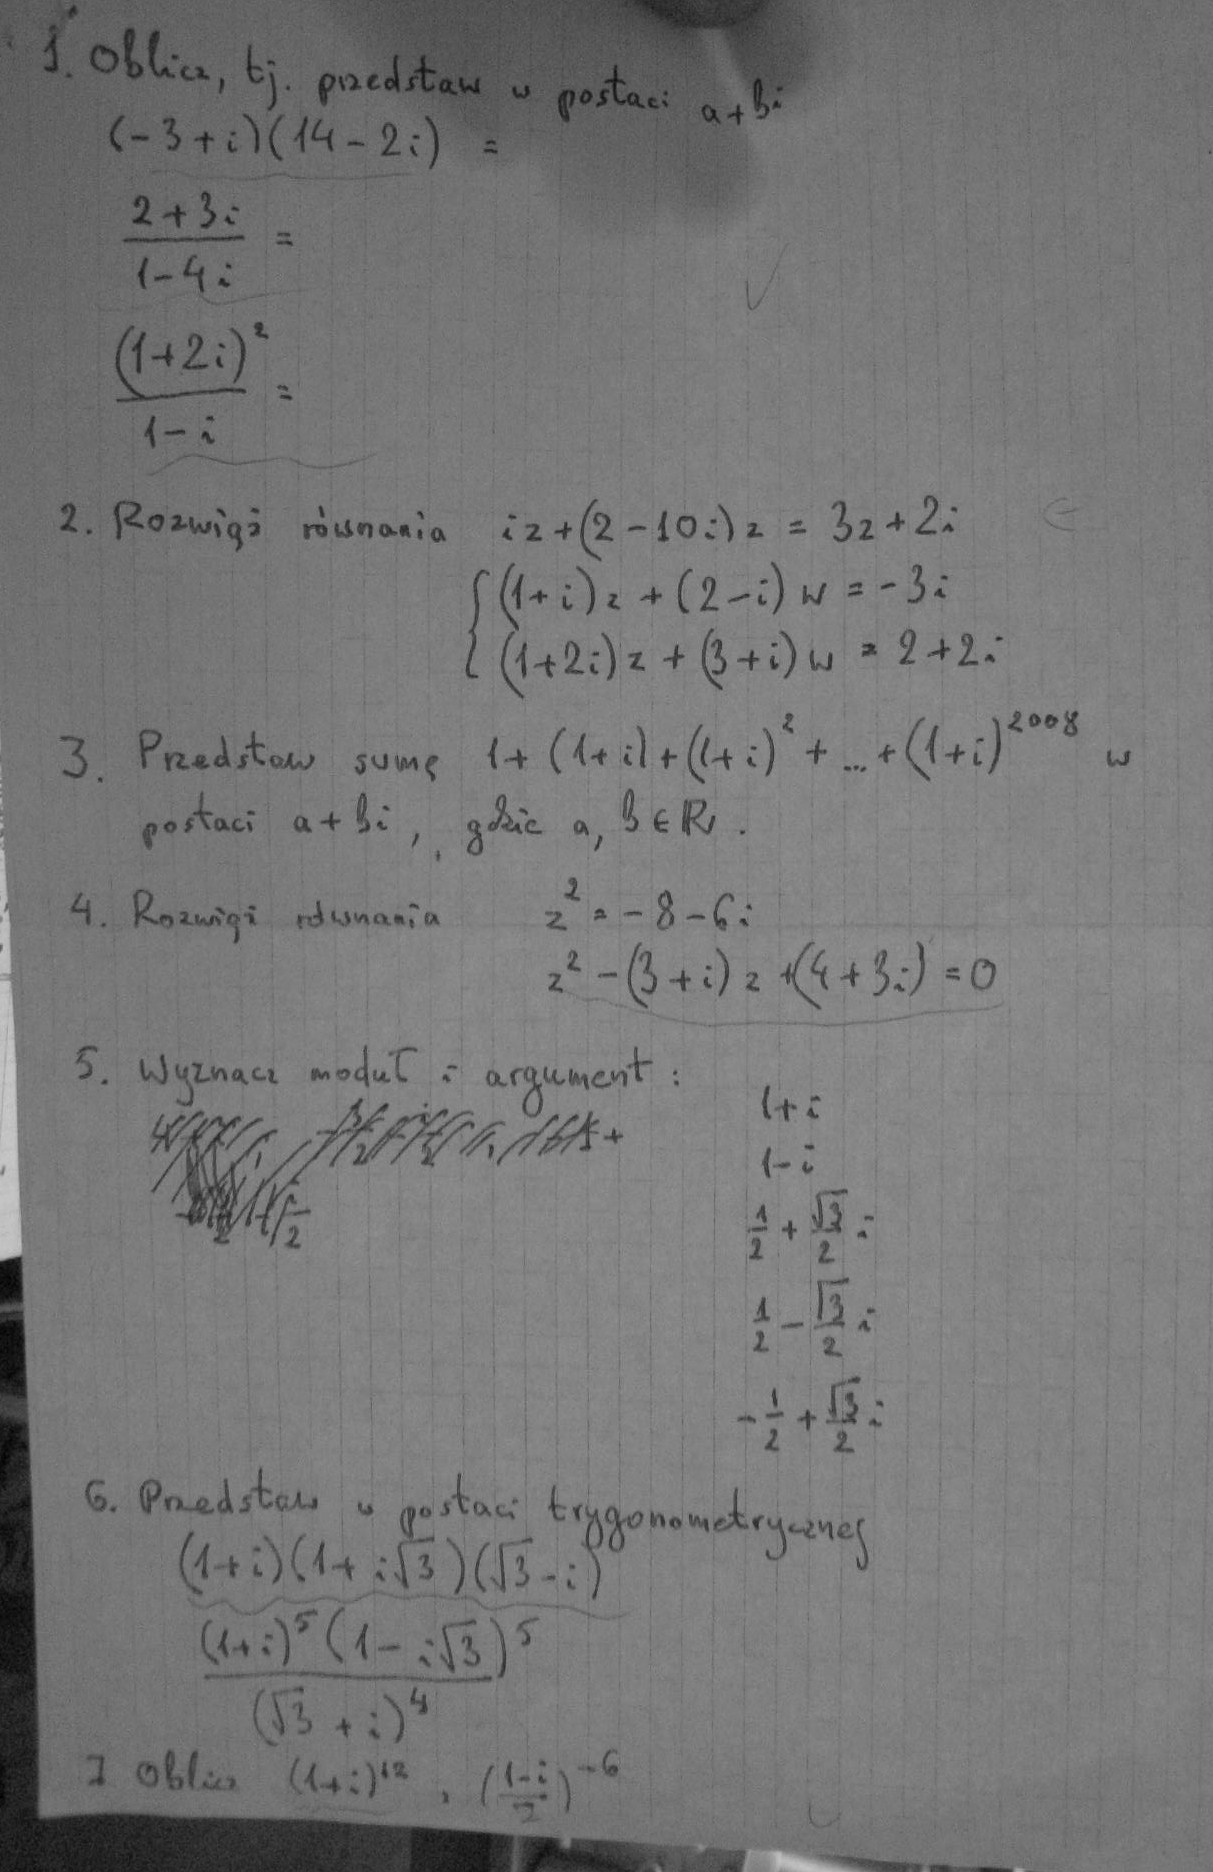 1. Oblicz, tj. przedstaw w postaci a+bi
(-3+i)(14-2i) =
2+3i
1-4i =
(1+2i)²
1-i =
2. Rozwiąż równania iz+(2-10i)z = 3z+2i
{ (1+i)z + (2-i)w = -3i
(1+2i)z + (3+i)w = 2+2i
3. Przedstaw sumę 1+(1+i)+(1+i)²+...+(1+i)²⁰⁰⁸ w
postaci a+bi, gdzie a, b ∈ R.
4. Rozwiąż równania z² = -8-6i
z² - (3+i)z + (4+3i) = 0
5. Wyznacz moduł i argument:
1+i
1-i
1/2 + √3/2 i
1/2 - √3/2 i
-1/2 + √3/2 i
6. Przedstaw w postaci trygonometrycznej
(1+i)(1+i√3)(√3-i)
(1+i)⁵(1-i√3)⁵
(√3+i)⁴
7 Oblicz (1+i)¹², ((1-i)/2)⁻⁶